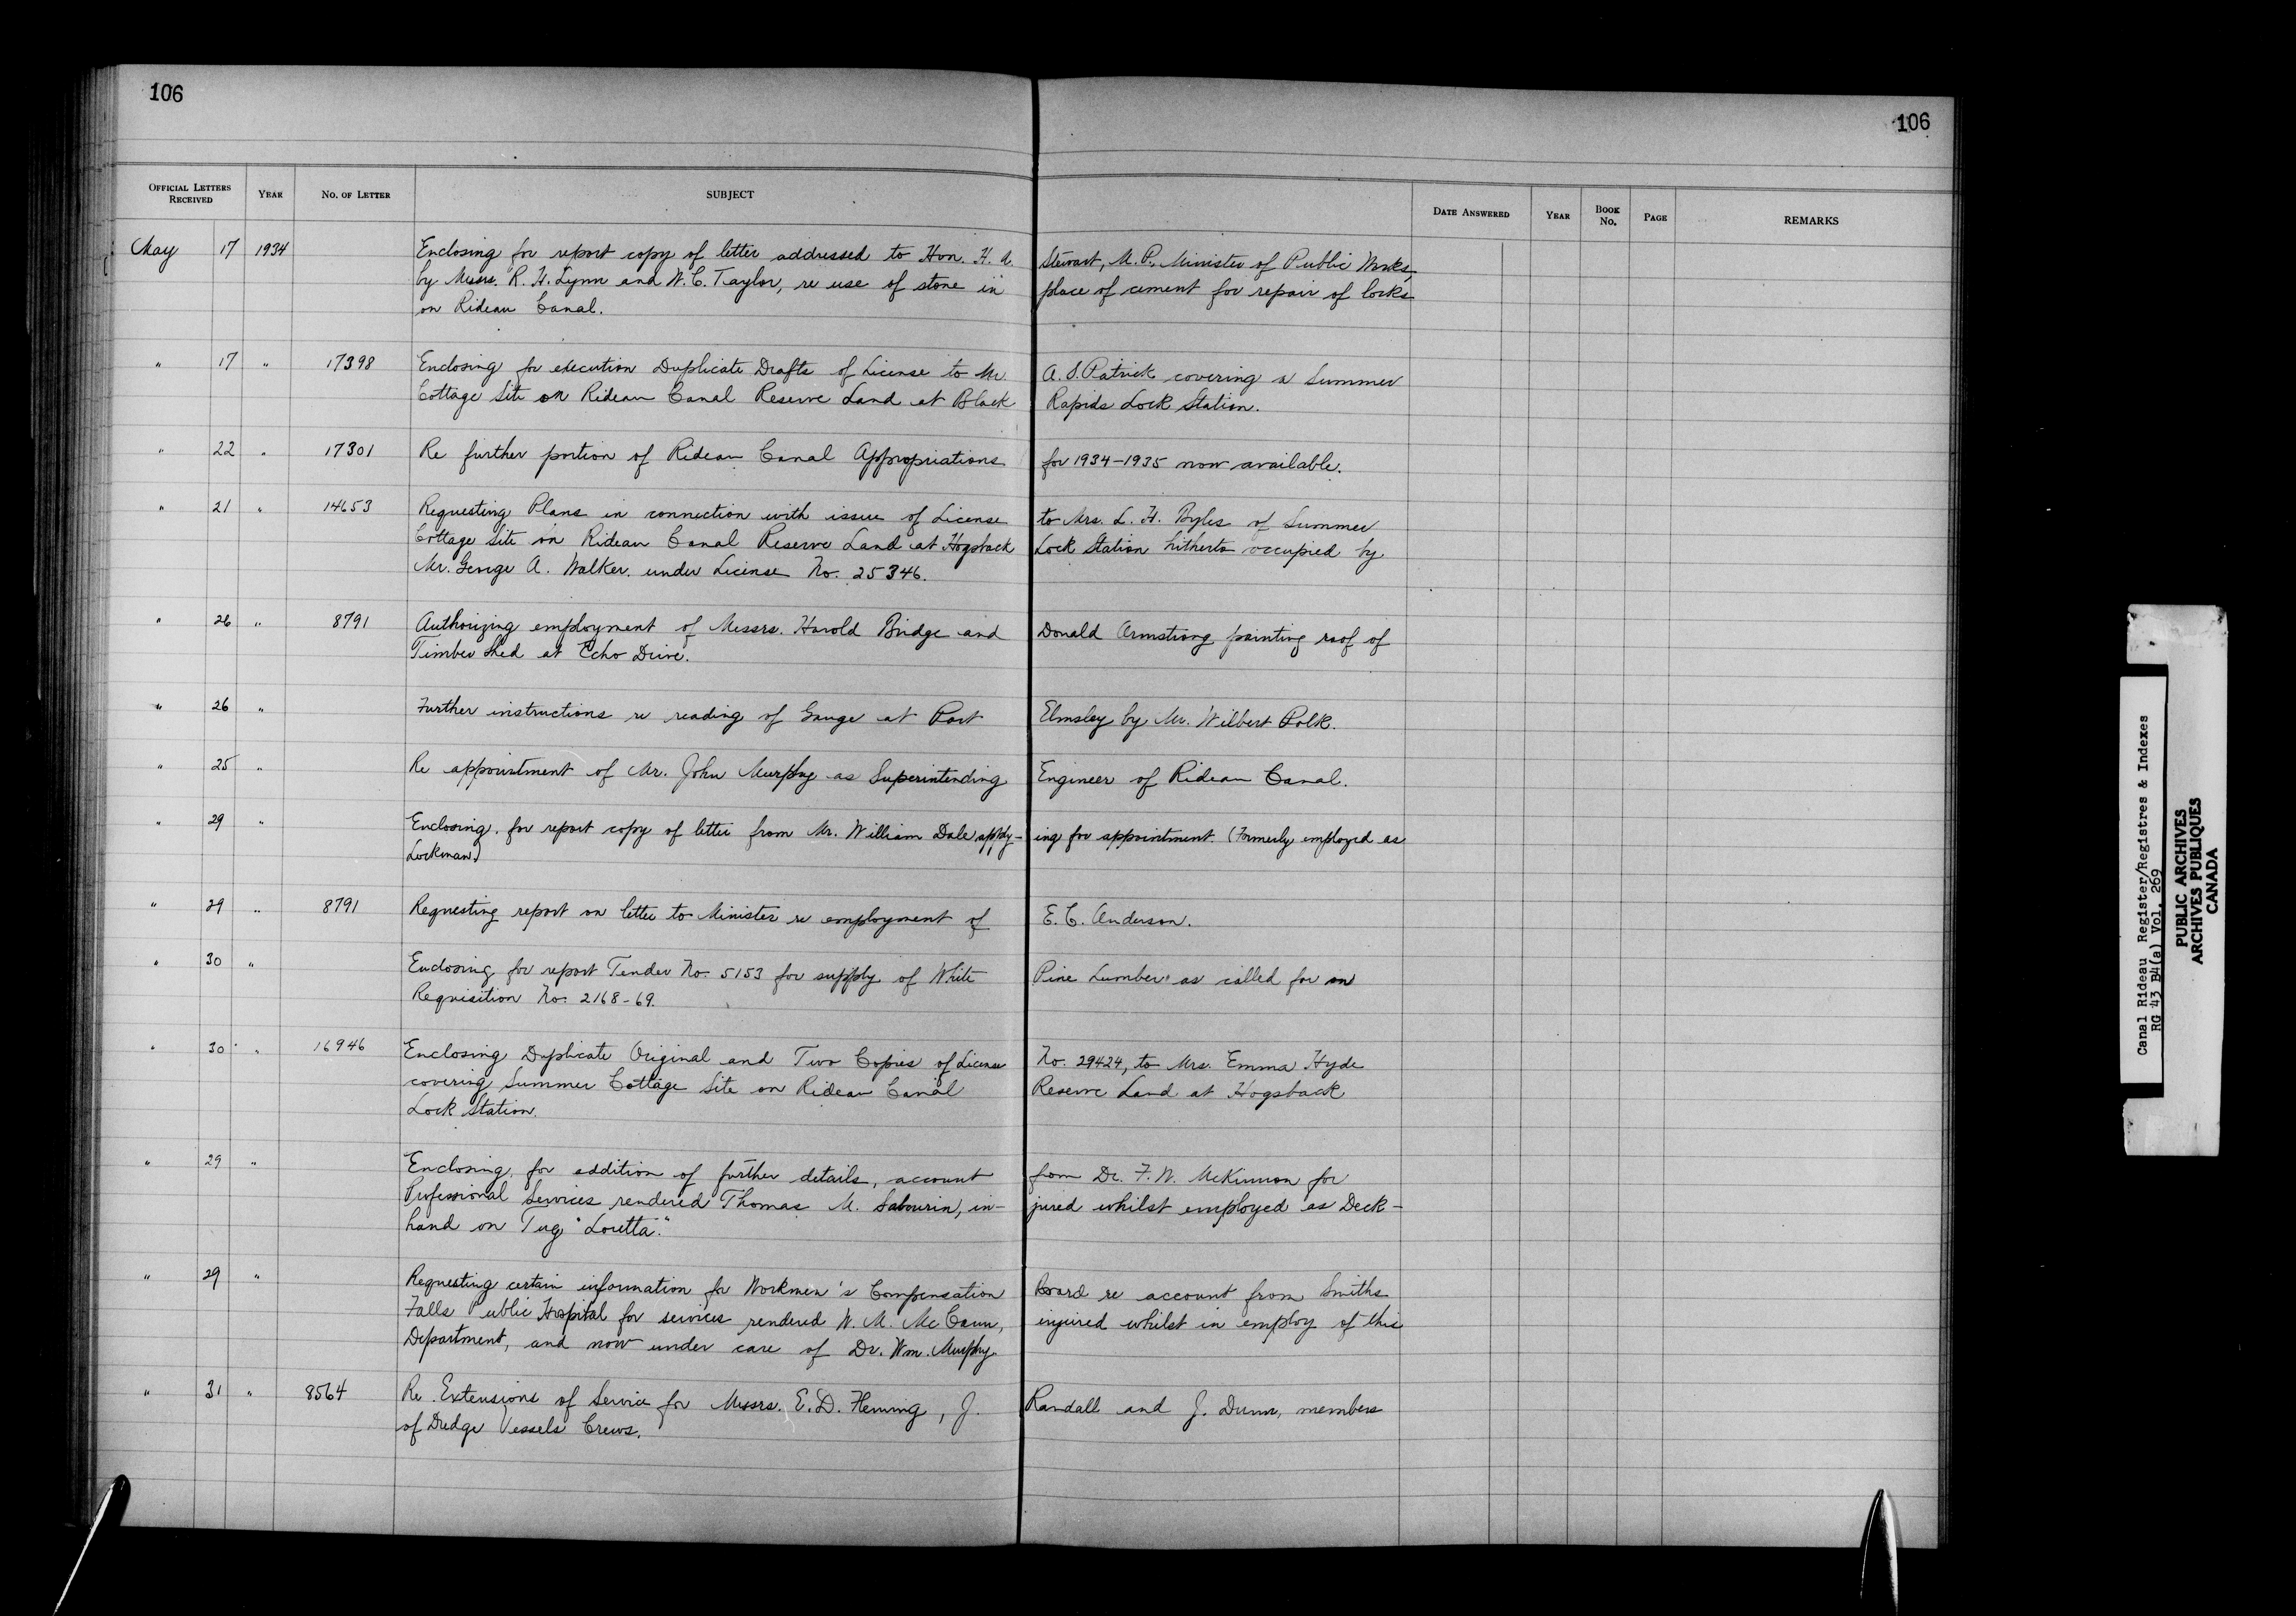 106
106
OFFICIAL LETTERS RECEIVED YEAR NO. OF LETTER SUBJECT DATE ANSWERED YEAR BOOK NO. PAGE REMARKS
May 17 1934 Enclosing for report copy of letter addressed to Hon. H. A. Stewart, M.P., Minister of Public Works,
by Messrs. R. H. Lynn and W. C. Taylor, re use of stone in place of cement for repair of locks
on Rideau Canal.
" 17 " 17398 Enclosing for execution Duplicate Drafts of License to Mr. A. S. Patrick covering a Summer
Cottage Site on Rideau Canal Reserve Land at Black Rapids Lock Station.
" 22 " 17301 Re further portion of Rideau Canal Appropriations for 1934-1935 now available.
" 21 " 14653 Requesting Plans in connection with issue of License to Mrs. L. H. Byles of Summer
Cottage Site on Rideau Canal Reserve Land at Hogsback Lock Station hitherto occupied by
Mr. George A. Walker. under License No. 25346.
" 26 " 8791 Authorizing employment of Messrs. Harold Bridge and Donald Armstrong painting roof of
Timber Shed at Echo Drive.
" 26 " Further instructions re reading of Gauge at Port Elmsley by Mr. Wilbert Polk.
" 25 " Re appointment of Mr. John Murphy as Superintending Engineer of Rideau Canal.
" 29 " Enclosing, for report copy of letter from Mr. William Dale apply- ing for appointment. (Formerly employed as
Lockman.)
" 29 " 8791 Requesting report on letter to Minister re employment of E. C. Anderson.
" 30 " Enclosing for report Tender No. 5153 for supply of White Pine Lumber as called for on
Requisition No. 2168-69.
" 30 " 16946 Enclosing Duplicate Original and Two Copies of License No. 29424, to Mrs. Emma Hyde
covering Summer Cottage Site on Rideau Canal Reserve Land at Hogsback
Lock Station.
" 29 " Enclosing, for addition of further details, account from Dr. F. W. McKinnon for
Professional Services rendered Thomas M. Sabourin, in- jured whilst employed as Deck-
hand on Tug "Loretta."
" 29 " Requesting certain information for Workmen's Compensation Board re account from Smiths
Falls Public Hospital for services rendered W. M. McCann, injured whilst in employ of this
Department, and now under care of Dr. Wm. Murphy.
" 31 " 8564 Re Extensions of Service for Messrs. E. D. Fleming, J. Randall and J. Dunn, members
of Dredge Vessels Crews.
Canal Rideau Register/Registres & Indexes
RG 43 B4(a) Vol. 269
PUBLIC ARCHIVES
ARCHIVES PUBLIQUES
CANADA